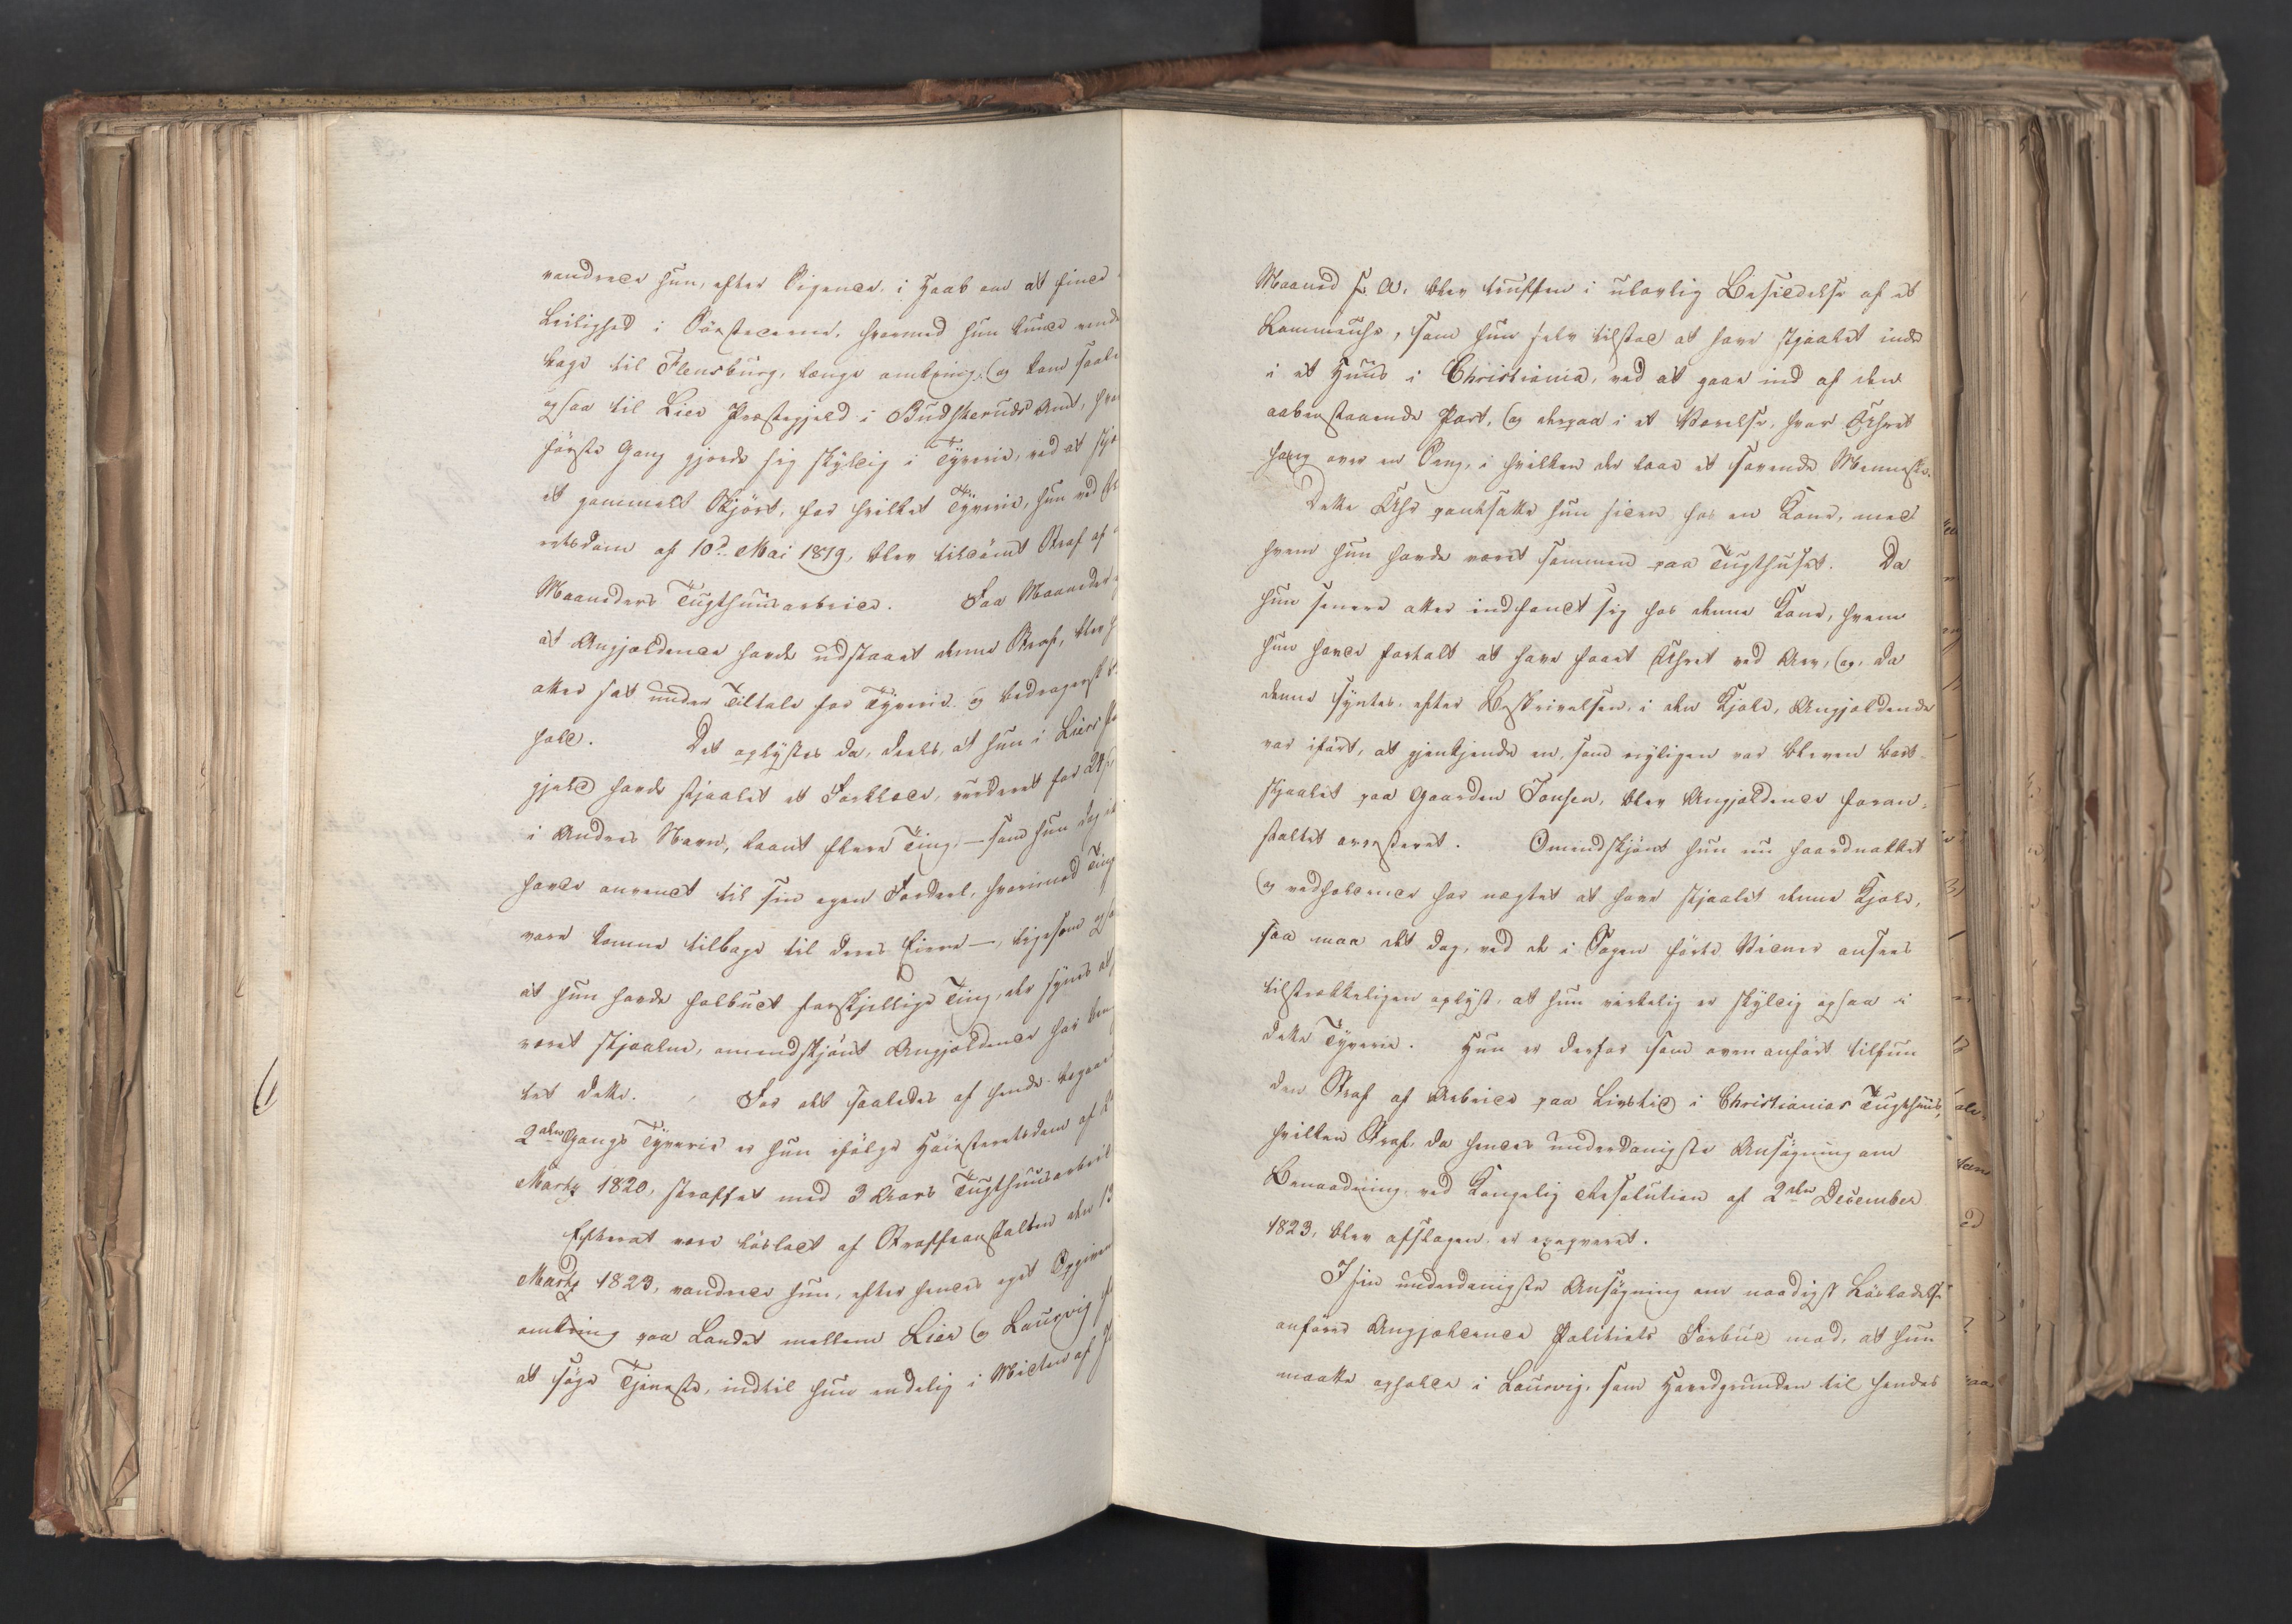 vandrede hun, efter Sigende, i Haab om at finde
Leilighed i Søestæderne, hvormed hun kunde vende
bage til Flensburg, længe omkring, og kom saale
ogsaa til Lier Præstegjeld i Budskeruds Amt, hvo
første Gang gjorde sig skyldig i Tyverie, ved at stjæ
et gammelt Skjört, for hvilket Tyverie, hun ved
retsdom af 10d. Mai 1819, blev tildömt Straf af
Maaneders Tugthuusarbeide. Faa Maaneder
at Angjældende havde udstaaet denne Straf, blev h
atter sat under Tiltale for Tyverie og bedragerskt
hold. Det oplystes da, deels, at hun i Liers
gjeld havde stjaalet et Forklæde, vurderet for
i Andres Navn, laant flere Ting, — som hun dog
havde anvendt til sin egen Fordeel, hvorimod Ting
vare komne tilbage til deres Eiere —, ligesom og
at hun havde falbudt forskjellige Ting, der synes at
været stjaalne, omendskjönt Angjældende har ben
tet dette. For det saaledes af hende begaae
2den Gangs Tyverie er hun ifölge Höiesteretsdom af
Marts 1820, straffet med 3 Aars Tugthuusarbeid
Efterat være lösladt af Straffeanstalten den 13
Marts 1823, vandrede hun, efter hendes eget Opgiven
omkring paa Landet mellem Lier og Laurvig
at söge Tjeneste, indtil hun endelig i Midten af
Maaned s. A. blev truffen i ulovlig Besiddelse af et
Lommeuhr, som hun selv tilstod at have stjaalet inde
i et Huus i Christiania, ved at gaae ind af den
aabenstaaende Port, og derpaa i et Værelse, hvor Uhret
hang over en Seng, i hvilken der laae et sovende Menneske.
Dette Uhr pantsatte hun siden hos en Kone, med
hvem hun havde været sammen paa Tugthuset. Da
hun senere atter indfandt sig hos denne Kone, hvem
hun havde fortalt at have faaet Uhret ved Arv, og, da
denne syntes, efter Beskrivelsen, i den Kjole, Angjældende
var ifört, at gjenkjende en, som nyligen var bleven bort-
stjaalet paa Gaarden Tonsen, blev Angjældende foran-
staltet arresteret. Omendskjönt hun nu haardnakket
og vedholdende har nægtet at have stjaalet denne Kjole,
saa maa det dog, ved de i Sagen förte Vidner ansees
tilstrækkeligen oplyst, at hun virkelig er skyldig ogsaa i
dette Tyverie. Hun er derfor som ovenanfört tilfun
den Straf af Arbeide paa Livstid i Christianias Tugthuus,
hvilken Straf, da hendes underdanigste Ansögning om
Benaadning ved Kongelig Resolution af 2den December
1823, blev afslagen, er exeqveret.
I sin underdanigste Ansögning om naadigst Lösladelse
anförer Angjældende Politiets Forbud mod, at hun
maatte opholde i Laurvig, som Hovedgrunden til hendes